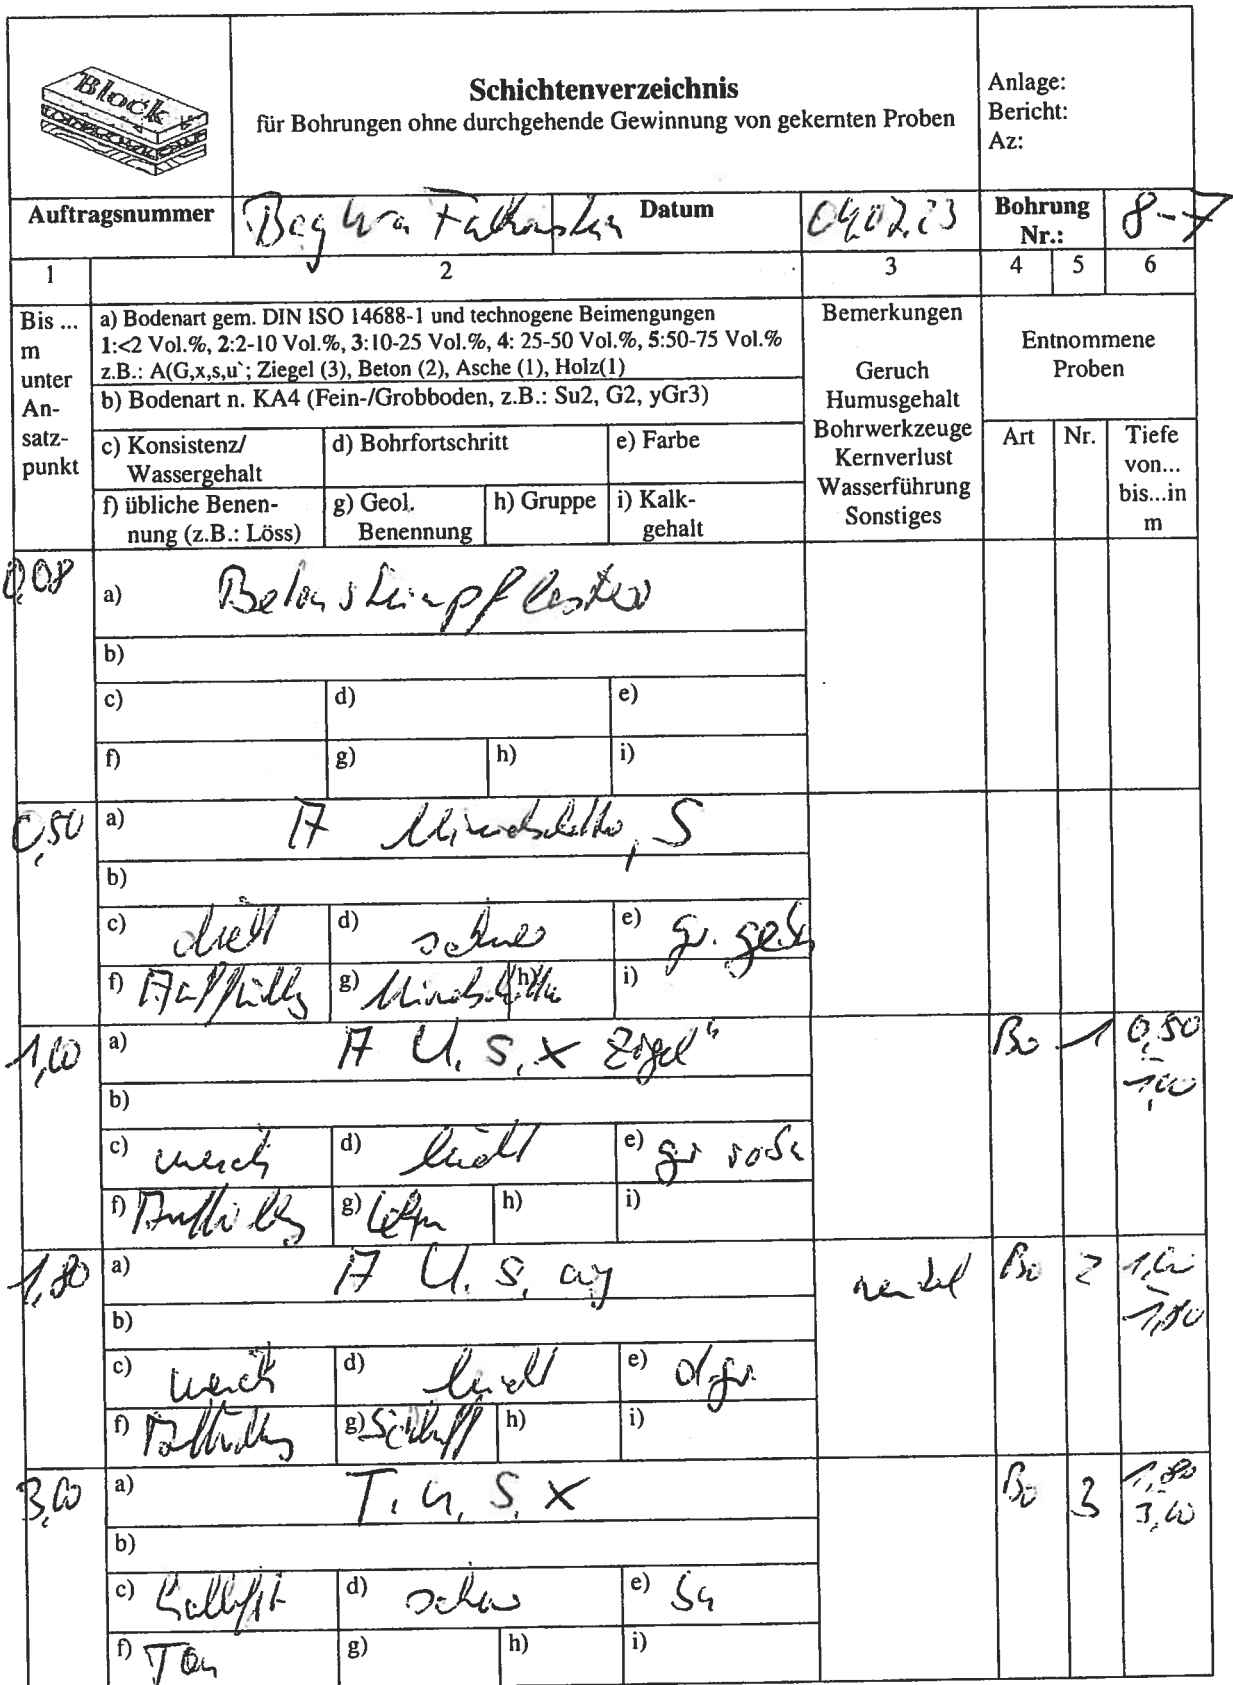 Block
Schichtenverzeichnis
für Bohrungen ohne durchgehende Gewinnung von gekernten Proben
Anlage:
Bericht:
Az:
Auftragsnummer
Datum
Bohrung
Nr.:
8-7
1 2 3 4 5 6
Bis ...
m
unter
An-
satz-
punkt
a) Bodenart gem. DIN ISO 14688-1 und technogene Beimengungen
1:<2 Vol.%, 2:2-10 Vol.%, 3:10-25 Vol.%, 4: 25-50 Vol.%, 5:50-75 Vol.%
z.B.: A(G,x,s,u`; Ziegel (3), Beton (2), Asche (1), Holz(1)
b) Bodenart n. KA4 (Fein-/Grobboden, z.B.: Su2, G2, yGr3)
c) Konsistenz/
Wassergehalt
d) Bohrfortschritt
e) Farbe
f) übliche Benen-
nung (z.B.: Löss)
g) Geol.
Benennung
h) Gruppe
i) Kalk-
gehalt
Bemerkungen
Geruch
Humusgehalt
Bohrwerkzeuge
Kernverlust
Wasserführung
Sonstiges
Entnommene
Proben
Art
Nr.
Tiefe
von...
bis...in
m
0,08
a) Betonsteinpflaster
b)
c) d) e)
f) g) h) i)
0,50
a) A , S
b)
c) dicht d) schwer e) gr.
f) Auffüllg g) h) i)
1,00
a) A U, S, X Ziegel
b)
c) weich d) leicht e) gr
f) Auffüllg g) Lehm h) i)
Bo 1 0,50
-
1,00
1,80
a) A U, S,
b)
c) weich d) leicht e) d.gr.
f) Auffüllg g) h) i)
Bo 2 1,00
-
1,80
3,00
a) T, u, S, X
b)
c) halbfest d) schwer e)
f) Ton g) h) i)
Bo 3 1,80
3,00